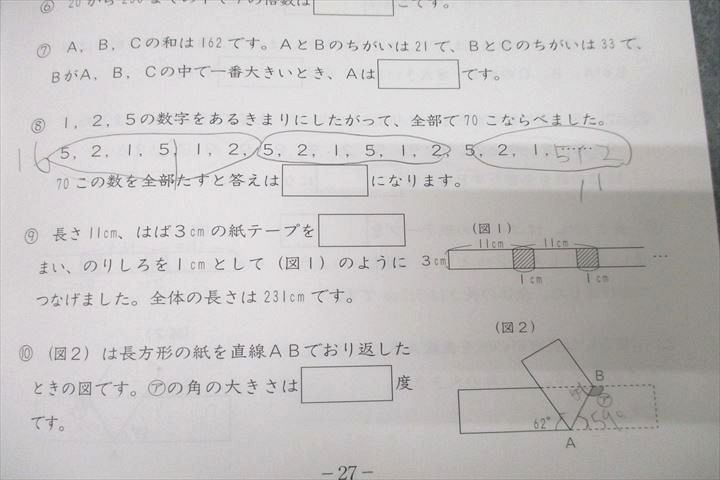 ⑥ 20から250までの中で7の倍数は　　　こです。
⑦ A，B，Cの和は162です。AとBのちがいは21で、BとCのちがいは33で、
BがA，B，Cの中で一番大きいとき、Aは　　　です。
⑧ 1，2，5の数字をあるきまりにしたがって、全部で70こならべました。
5，2，1，5，1，2，5，2，1，5，1，2，5，2，1，……512
16
70この数を全部たすと答えは　　　になります。
11
⑨ 長さ11cm、はば3cmの紙テープを
まい、のりしろを1cmとして（図1）のように
つなげました。全体の長さは231cmです。
（図1）
11cm 11cm
3cm …
1cm 1cm
⑩ （図2）は長方形の紙を直線ABでおり返した
ときの図です。㋐の角の大きさは　　　度
です。
（図2）
B
㋐
62° 59°
A
－27－